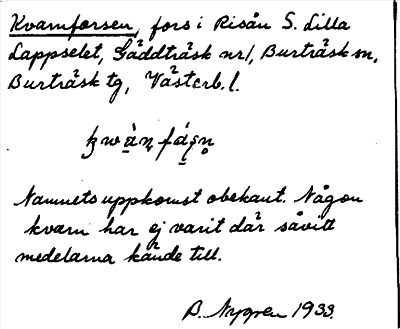 Kvarnforsen, fors i Risån S. Lilla
Lappselet, Gäddträsk nr 1, Burträsk sn,
Burträsk tg, Västerb. l.
Namnets uppkomst obekant. Någon
kvarn har ej varit där såvitt
medelarna kände till.
B. Nygren 1933.